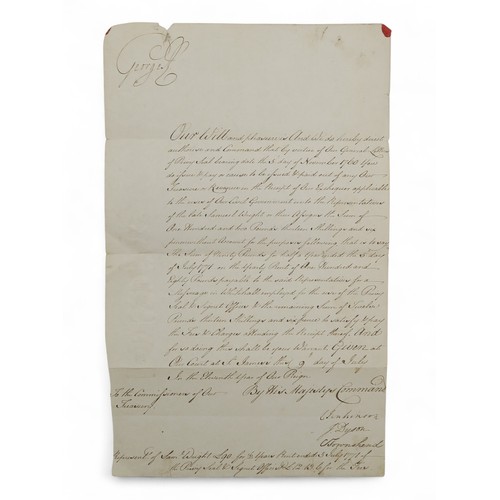 George R
Our Will and pleasure is And We do hereby direct
authorise and Command that by virtue of Our General Letters
of Privy Seal bearing date the 5 day of November 1760 You
do issue & pay or cause to be issued & paid out of any Our
Treasure or Revenue in the Receipt of Our Exchequer applicable
to the uses of Our Civil Government unto the Representatives
of the late Samuel Wright or their Assigns the Sum of
One Hundred and two Pounds twelve Shillings and six
pence without Account for the purposes following that is to say
the Sum of Ninety Pounds for half a Year ended the 5 day
of July 1771 on the Yearly Rent of One Hundred and
Eighty Pounds payable to the said Representatives for a
Messuage in Whitehall employed for the use of the Privy
Seal & Signet Offices & the remaining Sum of Twelve
Pounds twelve Shillings and six pence to satisfy & pay
the Fees & Charges attending the Receipt thereof And
for so doing this shall be your Warrant Given at
Our Court at St. James's this 9 day of July
In the Eleventh Year of Our Reign
To the Commissioners of Our
Treasury
By His Majestys Command
C Jenkinson
J Dyson
C Townshend
Represent. of Saml. Wright Esqr. for ½ Years Rent ended 5 July 1771 of
the Privy Seal & Signet Offices & 12 12 6 for the Fees